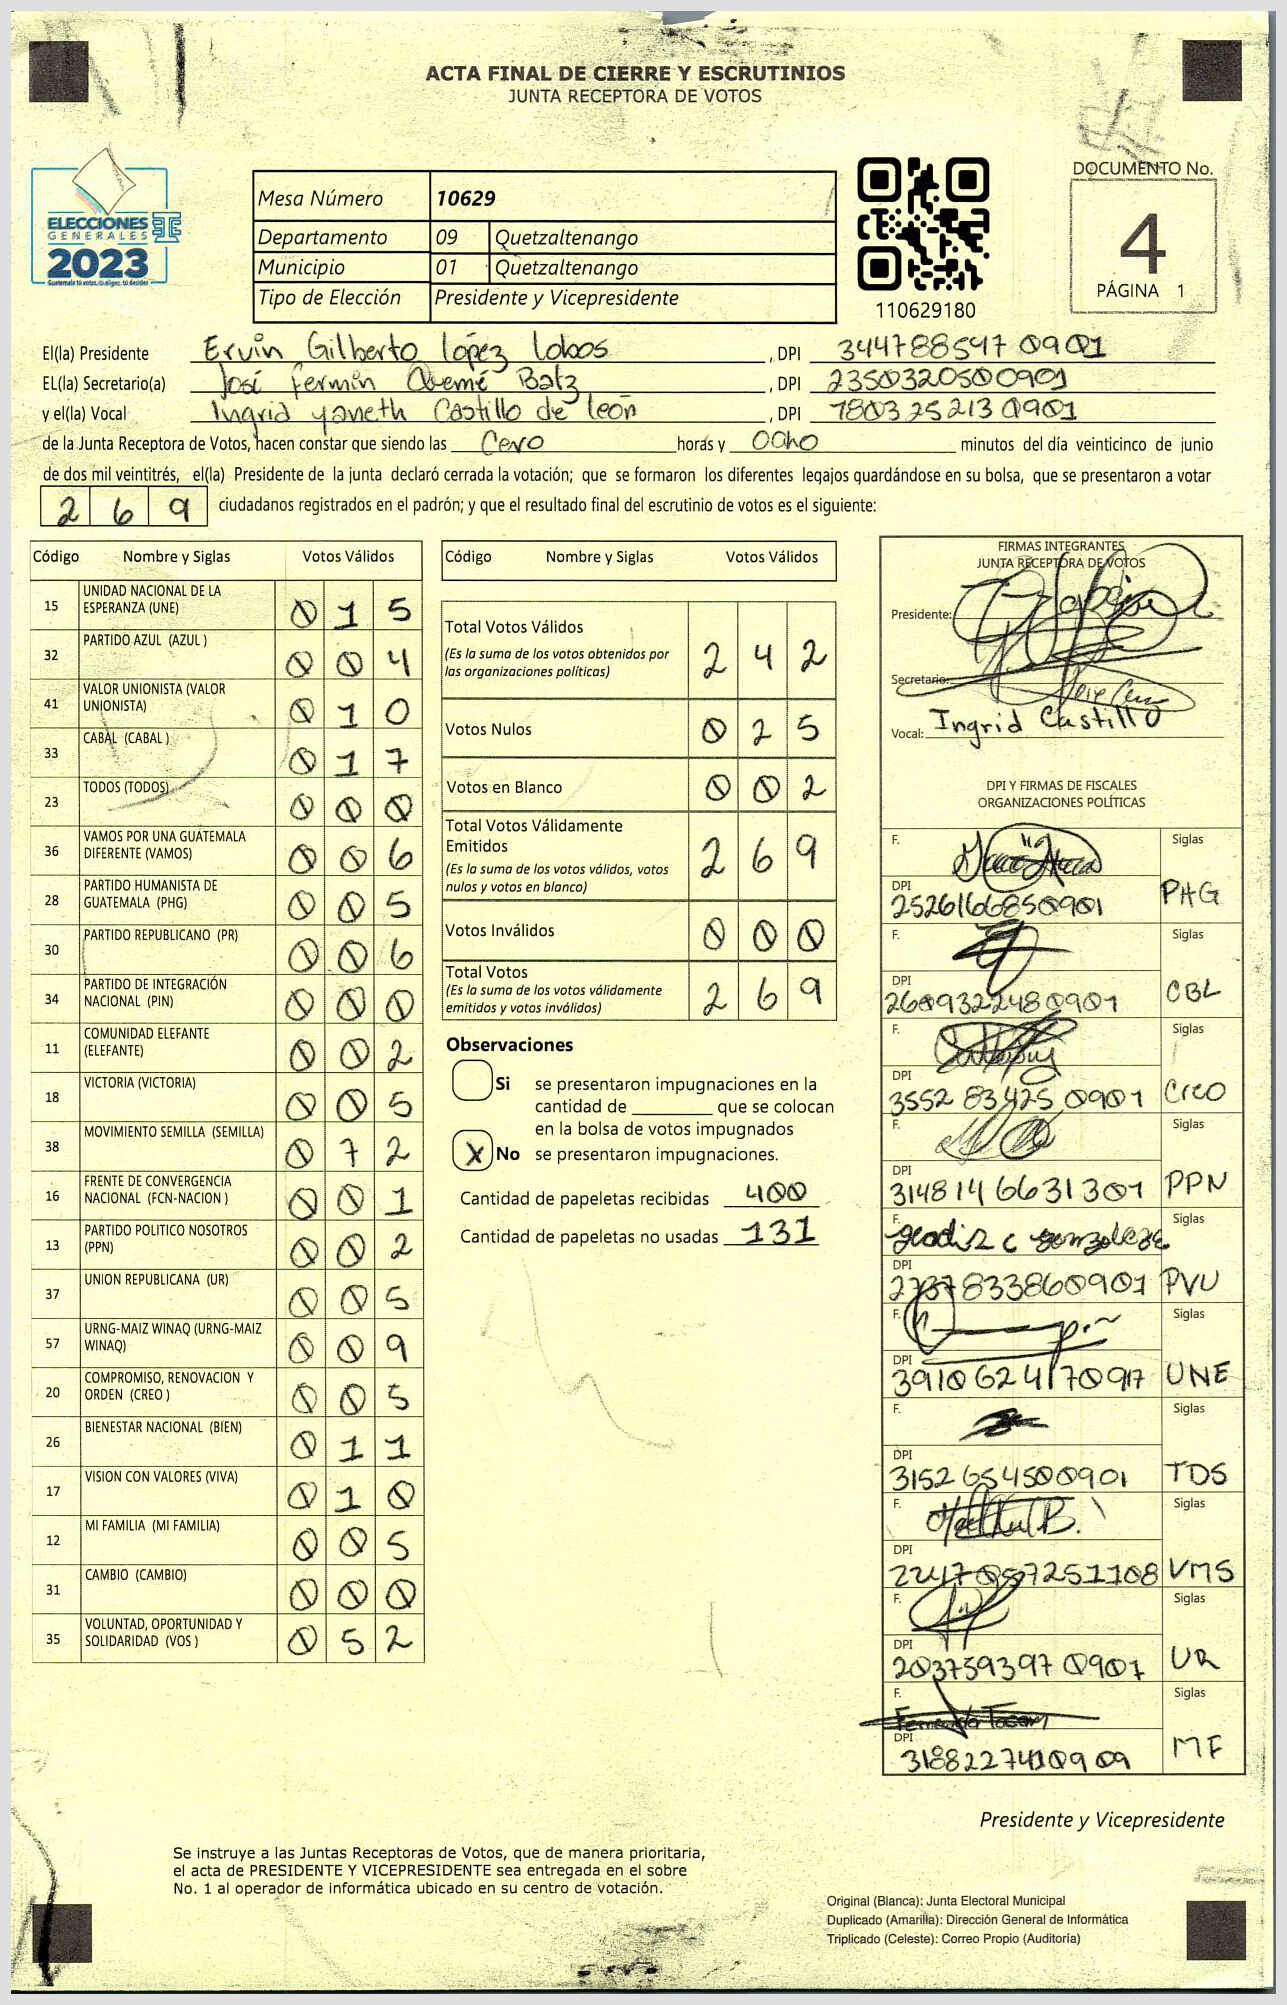 ACTA FINAL DE CIERRE Y ESCRUTINIOS
JUNTA RECEPTORA DE VOTOS
ELECCIONES
GENERALES
2023
Guatemala tú votas, tú eliges, tú decides
Mesa Número 10629
Departamento 09 Quetzaltenango
Municipio 01 Quetzaltenango
Tipo de Elección Presidente y Vicepresidente
110629180
DOCUMENTO No.
4
PÁGINA 1
El(la) Presidente Ervin Gilberto López Lobos, DPI 3447885970901
EL(la) Secretario(a) José fermín Batz, DPI 2350320500901
y el(la) Vocal Ingrid yaneth Castillo de león, DPI 7803252130901
de la Junta Receptora de Votos, hacen constar que siendo las Cero horas y Ocho minutos del día veinticinco de junio
de dos mil veintitrés, el(la) Presidente de la junta declaró cerrada la votación; que se formaron los diferentes legajos guardándose en su bolsa, que se presentaron a votar
269 ciudadanos registrados en el padrón; y que el resultado final del escrutinio de votos es el siguiente:
Código Nombre y Siglas Votos Válidos
15 UNIDAD NACIONAL DE LA ESPERANZA (UNE) 015
32 PARTIDO AZUL (AZUL ) 004
41 VALOR UNIONISTA (VALOR UNIONISTA) 010
33 CABAL (CABAL ) 017
23 TODOS (TODOS) 000
36 VAMOS POR UNA GUATEMALA DIFERENTE (VAMOS) 006
28 PARTIDO HUMANISTA DE GUATEMALA (PHG) 005
30 PARTIDO REPUBLICANO (PR) 006
34 PARTIDO DE INTEGRACIÓN NACIONAL (PIN) 000
11 COMUNIDAD ELEFANTE (ELEFANTE) 002
18 VICTORIA (VICTORIA) 005
38 MOVIMIENTO SEMILLA (SEMILLA) 072
16 FRENTE DE CONVERGENCIA NACIONAL (FCN-NACION ) 001
13 PARTIDO POLITICO NOSOTROS (PPN) 002
37 UNION REPUBLICANA (UR) 005
57 URNG-MAIZ WINAQ (URNG-MAIZ WINAQ) 009
20 COMPROMISO, RENOVACION Y ORDEN (CREO ) 005
26 BIENESTAR NACIONAL (BIEN) 011
17 VISION CON VALORES (VIVA) 010
12 MI FAMILIA (MI FAMILIA) 005
31 CAMBIO (CAMBIO) 000
35 VOLUNTAD, OPORTUNIDAD Y SOLIDARIDAD (VOS ) 052
Código Nombre y Siglas Votos Válidos
Total Votos Válidos 242
(Es la suma de los votos obtenidos por
las organizaciones políticas)
Votos Nulos 025
Votos en Blanco 002
Total Votos Válidamente
Emitidos 269
(Es la suma de los votos válidos, votos
nulos y votos en blanco)
Votos Inválidos 000
Total Votos 269
(Es la suma de los votos válidamente
emitidos y votos inválidos)
Observaciones
Si se presentaron impugnaciones en la
cantidad de ________ que se colocan
en la bolsa de votos impugnados
X No se presentaron impugnaciones.
Cantidad de papeletas recibidas 400
Cantidad de papeletas no usadas 131
FIRMAS INTEGRANTES
JUNTA RECEPTORA DE VOTOS
Presidente:
Secretario:
Vocal: Ingrid Castillo
DPI Y FIRMAS DE FISCALES
ORGANIZACIONES POLÍTICAS
F. Siglas
DPI 2526166850901 PHG
F. Siglas
DPI 2609322480901 CBL
F. Siglas
DPI 3552834250901 Creo
F. Siglas
DPI 3148146631301 PPN
F. Siglas
DPI 2737833860901 PVU
F. Siglas
DPI 3910624170917 UNE
F. Siglas
DPI 3152654500901 TDS
F. Siglas
DPI 2247057251108 VMS
F. Siglas
DPI 2037593970901 UR
F. Siglas
DPI 3188227410909 MF
Presidente y Vicepresidente
Se instruye a las Juntas Receptoras de Votos, que de manera prioritaria,
el acta de PRESIDENTE Y VICEPRESIDENTE sea entregada en el sobre
No. 1 al operador de informática ubicado en su centro de votación.
Original (Blanca): Junta Electoral Municipal
Duplicado (Amarilla): Dirección General de Informática
Triplicado (Celeste): Correo Propio (Auditoría)